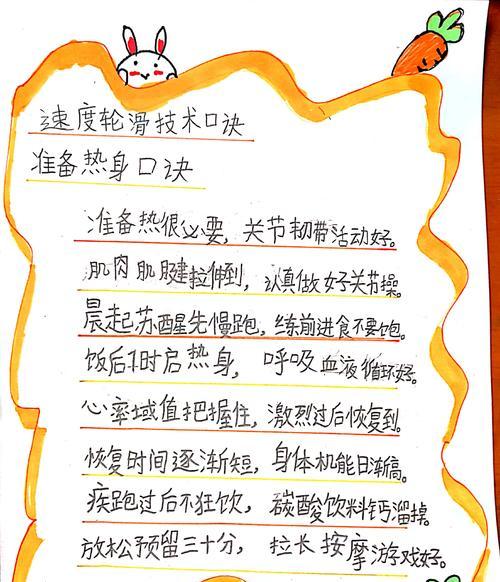 速度轮滑技术口诀
准备热身口诀
准备热很必要，关节韧带活动好。
肌肉肌腱拉伸到，认真做好关节操。
晨起苏醒先慢跑，练前进食不要饱。
饭后1时启热身，呼吸血液循环好。
心率域值把握住，激烈过后恢复到。
恢复时间逐渐短，身体机能日渐高。
疾跑过后不狂饮，碳酸饮料钙溜掉。
放松预留三十分，拉长按摩游戏好。